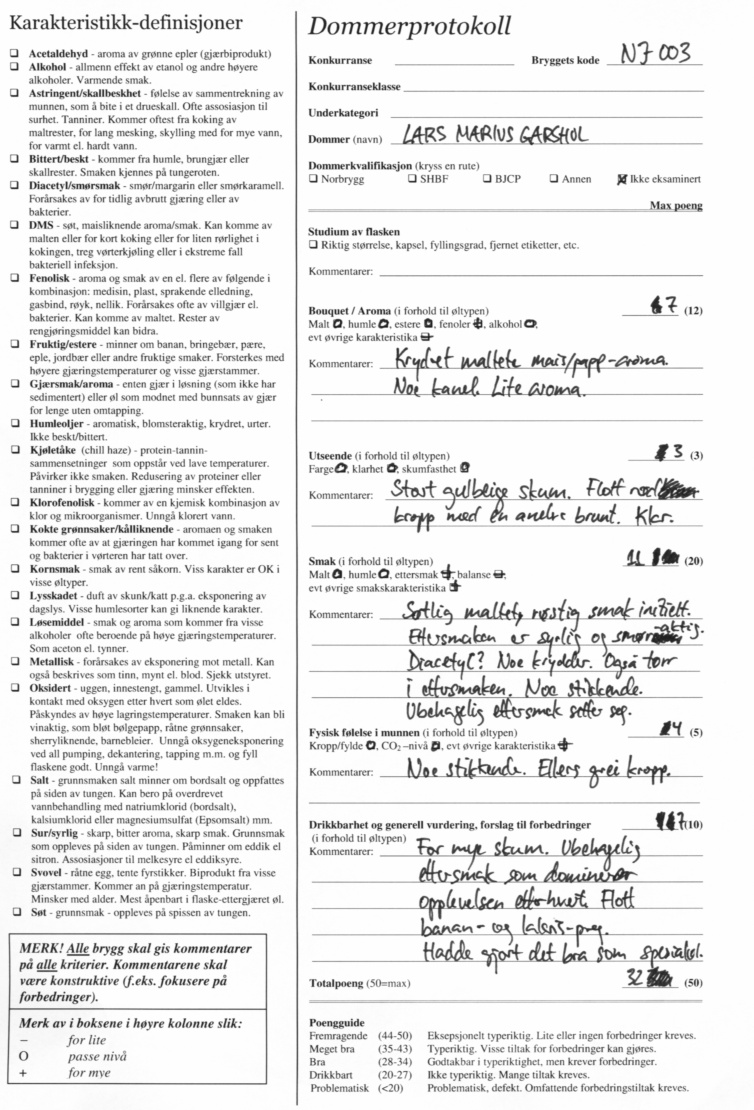 Karakteristikk-definisjoner
❑ Acetaldehyd - aroma av grønne epler (gjærbiprodukt)
❑ Alkohol - allmenn effekt av etanol og andre høyere
alkoholer. Varmende smak.
❑ Astringent/skallbeskhet - følelse av sammentrekning av
munnen, som å bite i et drueskall. Ofte assosiasjon til
surhet. Tanniner. Kommer oftest fra koking av
maltrester, for lang mesking, skylling med for mye vann,
for varmt el. hardt vann.
❑ Bittert/beskt - kommer fra humle, brungjær eller
skallrester. Smaken kjennes på tungeroten.
❑ Diacetyl/smørsmak - smør/margarin eller smørkaramell.
Forårsakes av for tidlig avbrutt gjæring eller av
bakterier.
❑ DMS - søt, maisliknende aroma/smak. Kan komme av
malten eller for kort koking eller for liten rørlighet i
kokingen, treg vørterkjøling eller i ekstreme fall
bakteriell infeksjon.
❑ Fenolisk - aroma og smak av en el. flere av følgende i
kombinasjon: medisin, plast, sprakende elledning,
gasbind, røyk, nellik. Forårsakes ofte av villgjær el.
bakterier. Kan komme av maltet. Rester av
rengjøringsmiddel kan bidra.
❑ Fruktig/estere - minner om banan, bringebær, pære,
eple, jordbær eller andre fruktige smaker. Forsterkes med
høyere gjæringstemperaturer og visse gjærstammer.
❑ Gjærsmak/aroma - enten gjær i løsning (som ikke har
sedimentert) eller øl som modnet med bunnsats av gjær
for lenge uten omtapping.
❑ Humleoljer - aromatisk, blomsteraktig, krydret, urter.
Ikke beskt/bittert.
❑ Kjøletåke (chill haze) - protein-tannin-
sammensetninger som oppstår ved lave temperaturer.
Påvirker ikke smaken. Redusering av proteiner eller
tanniner i brygging eller gjæring minsker effekten.
❑ Klorofenolisk - kommer av en kjemisk kombinasjon av
klor og mikroorganismer. Unngå klorert vann.
❑ Kokte grønnsaker/kålliknende - aromaen og smaken
kommer ofte av at gjæringen har kommet igang for sent
og bakterier i vørteren har tatt over.
❑ Kornsmak - smak av rent såkorn. Viss karakter er OK i
visse øltyper.
❑ Lysskadet - duft av skunk/katt p.g.a. eksponering av
dagslys. Visse humlesorter kan gi liknende karakter.
❑ Løsemiddel - smak og aroma som kommer fra visse
alkoholer ofte beroende på høye gjæringstemperaturer.
Som aceton el. tynner.
❑ Metallisk - forårsakes av eksponering mot metall. Kan
også beskrives som tinn, mynt el. blod. Sjekk utstyret.
❑ Oksidert - uggen, innestengt, gammel. Utvikles i
kontakt med oksygen etter hvert som ølet eldes.
Påskyndes av høye lagringstemperaturer. Smaken kan bli
vinaktig, som bløt bølgepapp, råtne grønnsaker,
sherryliknende, barnebleier. Unngå oksygeneksponering
ved all pumping, dekantering, tapping m.m. og fyll
flaskene godt. Unngå varme!
❑ Salt - grunnsmaken salt minner om bordsalt og oppfattes
på siden av tungen. Kan bero på overdrevet
vannbehandling med natriumklorid (bordsalt),
kalsiumklorid eller magnesiumsulfat (Epsomsalt) mm.
❑ Sur/syrlig - skarp, bitter aroma, skarp smak. Grunnsmak
som oppleves på siden av tungen. Påminner om eddik el
sitron. Assosiasjoner til melkesyre el eddiksyre.
❑ Svovel - råtne egg, tente fyrstikker. Biprodukt fra visse
gjærstammer. Kommer an på gjæringstemperatur.
Minsker med alder. Mest åpenbart i flaske-ettergjæret øl.
❑ Søt - grunnsmak - oppleves på spissen av tungen.
MERK! Alle brygg skal gis kommentarer
på alle kriterier. Kommentarene skal
være konstruktive (f.eks. fokusere på
forbedringer).
Merk av i boksene i høyre kolonne slik:
– for lite
O passe nivå
+ for mye
Dommerprotokoll
Konkurranse Bryggets kode NJ 003
Konkurranseklasse
Underkategori
Dommer (navn) LARS MARIUS GARSHOL
Dommerkvalifikasjon (kryss en rute)
❑ Norbrygg ❑ SHBF ❑ BJCP ❑ Annen ☒ Ikke eksaminert
Max poeng
Studium av flasken
❑ Riktig størrelse, kapsel, fyllingsgrad, fjernet etiketter, etc.
Kommentarer:
Bouquet / Aroma (i forhold til øltypen) 7 (12)
Malt O, humle O, estere O, fenoler +, alkohol O,
evt øvrige karakteristika –
Kommentarer: Krydret maltete mais/papp-aroma.
Noe kanel. Lite aroma.
Utseende (i forhold til øltypen) 3 (3)
Farge O, klarhet O, skumfasthet O
Kommentarer: Stort gulbeige skum. Flott rød
kropp med en anelse brunt. Klar.
Smak (i forhold til øltypen) 11 (20)
Malt O, humle O, ettersmak +, balanse –,
evt øvrige smakskarakteristika +
Kommentarer: Søtlig maltety røstig smak initielt.
Ettersmaken er syrlig og smør-aktig.
Diacetyl? Noe krydder. Også tørr
i ettersmaken. Noe stikkende.
Ubehagelig ettersmak setter seg.
Fysisk følelse i munnen (i forhold til øltypen) 4 (5)
Kropp/fylde O, CO2 –nivå O, evt øvrige karakteristika +
Kommentarer: Noe stikkende. Ellers grei kropp.
Drikkbarhet og generell vurdering, forslag til forbedringer 7 (10)
(i forhold til øltypen)
Kommentarer: For mye skum. Ubehagelig
ettersmak som dominerer
opplevelsen etterhvert. Flott
banan- og lakris-preg.
Hadde gjort det bra som spesialøl.
Totalpoeng (50=max) 32 (50)
Poengguide
Fremragende (44-50) Eksepsjonelt typeriktig. Lite eller ingen forbedringer kreves.
Meget bra (35-43) Typeriktig. Visse tiltak for forbedringer kan gjøres.
Bra (28-34) Godtakbar i typeriktighet, men krever forbedringer.
Drikkbart (20-27) Ikke typeriktig. Mange tiltak kreves.
Problematisk (<20) Problematisk, defekt. Omfattende forbedringstiltak kreves.